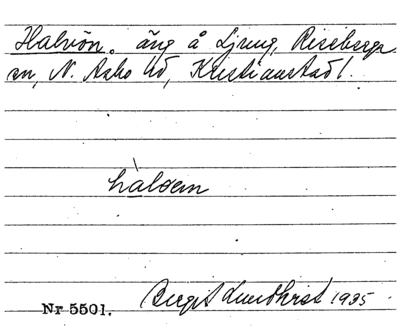 Halvön. äng å Ljung, Riseberga
sn, N. Åsbo hd, Kristianstad l.
hàlvøn
Birgit Lundkvist 1935
Nr 5501.